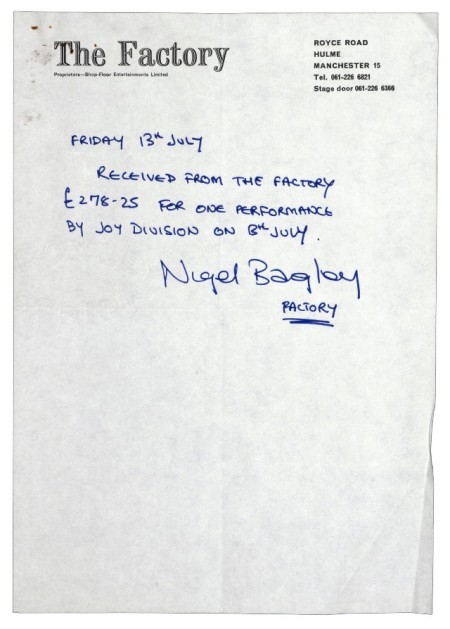 The Factory
Proprietors—Shop-Floor Entertainments Limited
ROYCE ROAD
HULME
MANCHESTER 15
Tel. 061-226 6821
Stage door 061-226 6366
FRIDAY 13th JULY
RECEIVED FROM THE FACTORY
£278-25 FOR ONE PERFORMANCE
BY JOY DIVISION ON 13th JULY.
Nigel Bagley
FACTORY